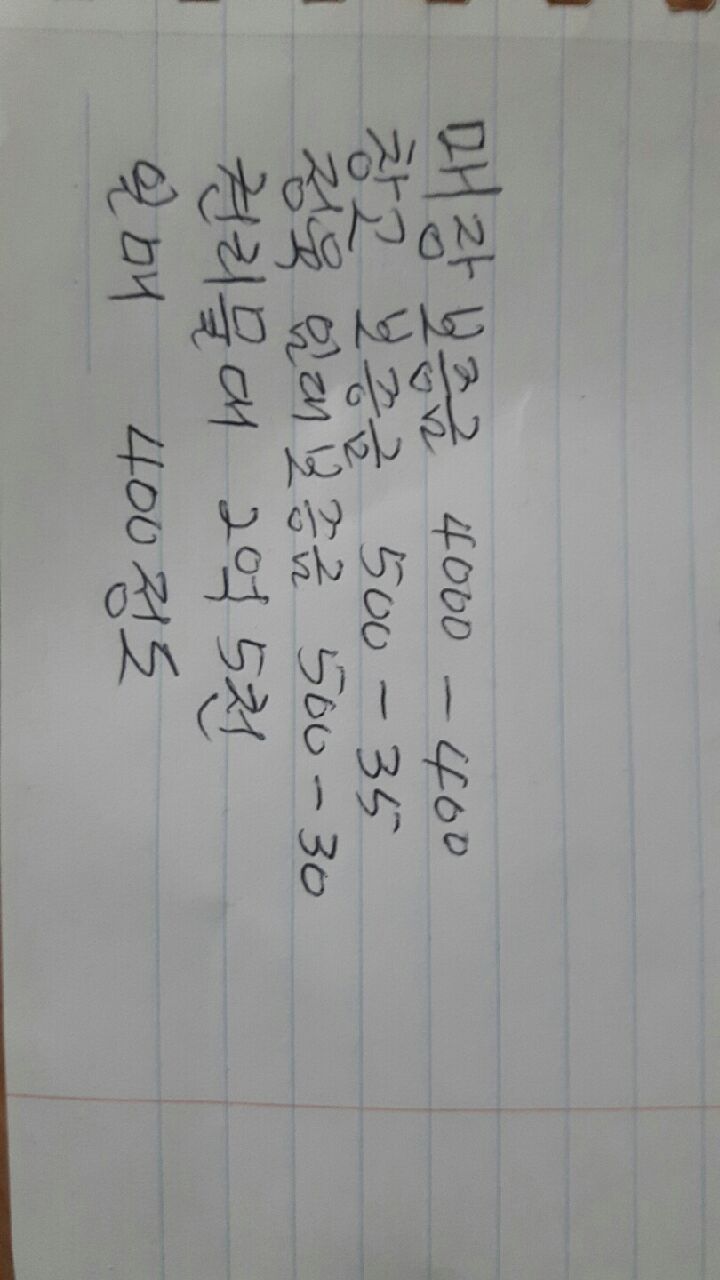 매장 보증금 4000-400
창고 보증금 500-35
정육 임대보증금 500-30
권리물대 2억 5천
일매 400정도